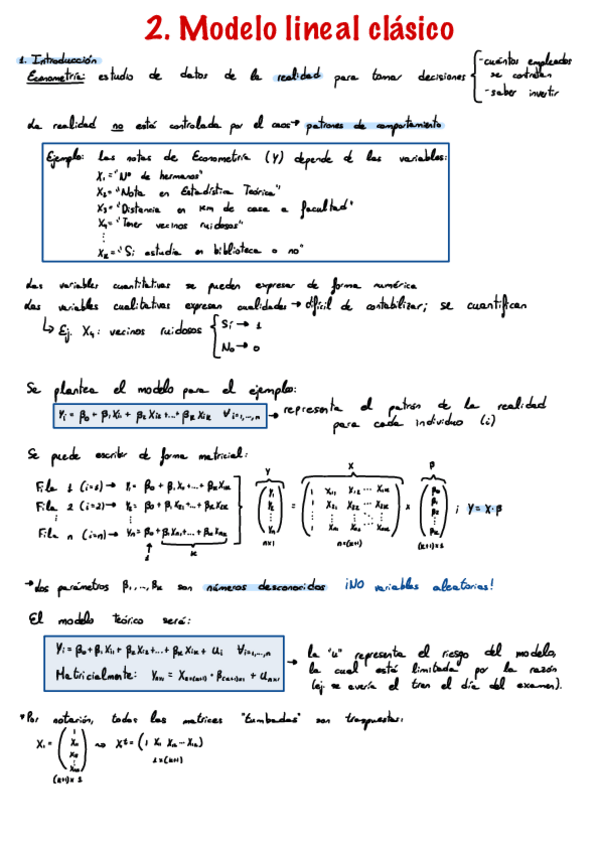 2. Modelo lineal clásico
1. Introducción
Econometría: estudio de datos de la realidad para tomar decisiones { -cuántos empleados se contratan
-saber invertir
La realidad no está controlada por el caos → patrones de comportamiento
Ejemplo: las notas de Econometría (Y) depende d las variables:
X₁ = "Nº de hermanos"
X₂ = "Nota en Estadística Teórica"
X₃ = "Distancia en km de casa a facultad"
X₄ = "Tener vecinos ruidosos"
⋮
Xₖ = "Si estudia en biblioteca o no"
Las variables cuantitativas se pueden expresar de forma numérica
Las variables cualitativas expresan cualidades → difícil de contabilizar; se cuantifican
↳ Ej. X₄: vecinos ruidosos { Sí → 1
No → 0
Se plantea el modelo para el ejemplo:
Yᵢ = β₀ + β₁Xᵢ₁ + β₂Xᵢ₂ + ... + βₖXᵢₖ ∀ i=1,...,n → representa el patrón de la realidad
para cada individuo (i)
Se puede escribir de forma matricial:
Y X β
Fila 1 (i=1) → Y₁ = β₀ + β₁X₁₁ + ... + βₖX₁ₖ
Fila 2 (i=2) → Y₂ = β₀ + β₁X₂₁ + ... + βₖX₂ₖ
⋮ ⋮
Fila n (i=n) → Yₙ = β₀ + β₁Xₙ₁ + ... + βₖXₙₖ
1 k
(Y₁ Y₂ ⋮ Yₙ) = (1 X₁₁ X₁₂ ... X₁ₖ
1 X₂₁ X₂₂ ... X₂ₖ
⋮ ⋮ ⋮ ⋮
1 Xₙ₁ Xₙ₂ ... Xₙₖ) × (β₀ β₁ β₂ ⋮ βₖ) ; Y = X·β
n×1 n×(k+1) (k+1)×1
→ Los parámetros β₁,...,βₖ son números desconocidos ¡NO variables aleatorias!
El modelo teórico será:
Yᵢ = β₀ + β₁Xᵢ₁ + β₂Xᵢ₂ + ... + βₖXᵢₖ + uᵢ ∀ i=1,...,n
Matricialmente: Yₙₓ₁ = Xₙₓ(ₖ₊₁) · β(ₖ₊₁)ₓ₁ + uₙₓ₁
→ la "u" representa el riesgo del modelo,
la cual está limitada por la razón
(ej. se avería el tren el día del examen).
*Por notación, todas las matrices "tumbadas" son traspuestas:
Xᵢ = (1 Xᵢ₁ Xᵢ₂ ⋮ Xᵢₖ) ⇝ Xᵗ = (1 Xᵢ₁ Xᵢ₂ ... Xᵢₖ)
(k+1)×1 1×(k+1)